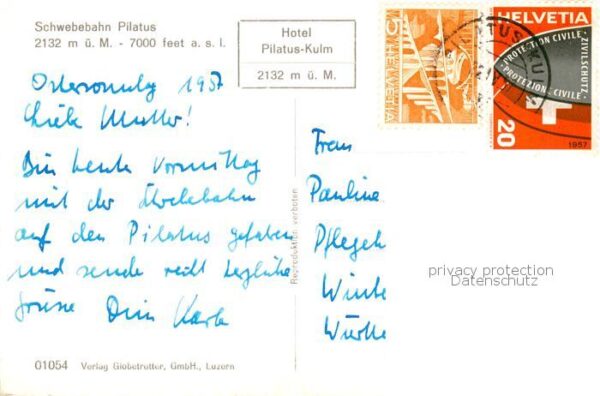 Schwebebahn Pilatus
2132 m ü. M. - 7000 feet a. s. l.
Hotel
Pilatus-Kulm
2132 m ü. M.
5
HELVETIA
HELVETIA
PROTECTION CIVILE · ZIVILSCHUTZ ·
PROTEZION. CIVILE ·
20
1957
Ostersonntag 1957
Liebe Mutter!
Bin heute Vormittag
mit der Schwebebahn
auf den Pilatus gefahren
und sende recht herzliche
Grüsse Dein Karl
Frau
Pauline
Pflegeh
Reproduktion verboten
privacy protection
Datenschutz
01054 Verlag Globetrotter, GmbH., Luzern